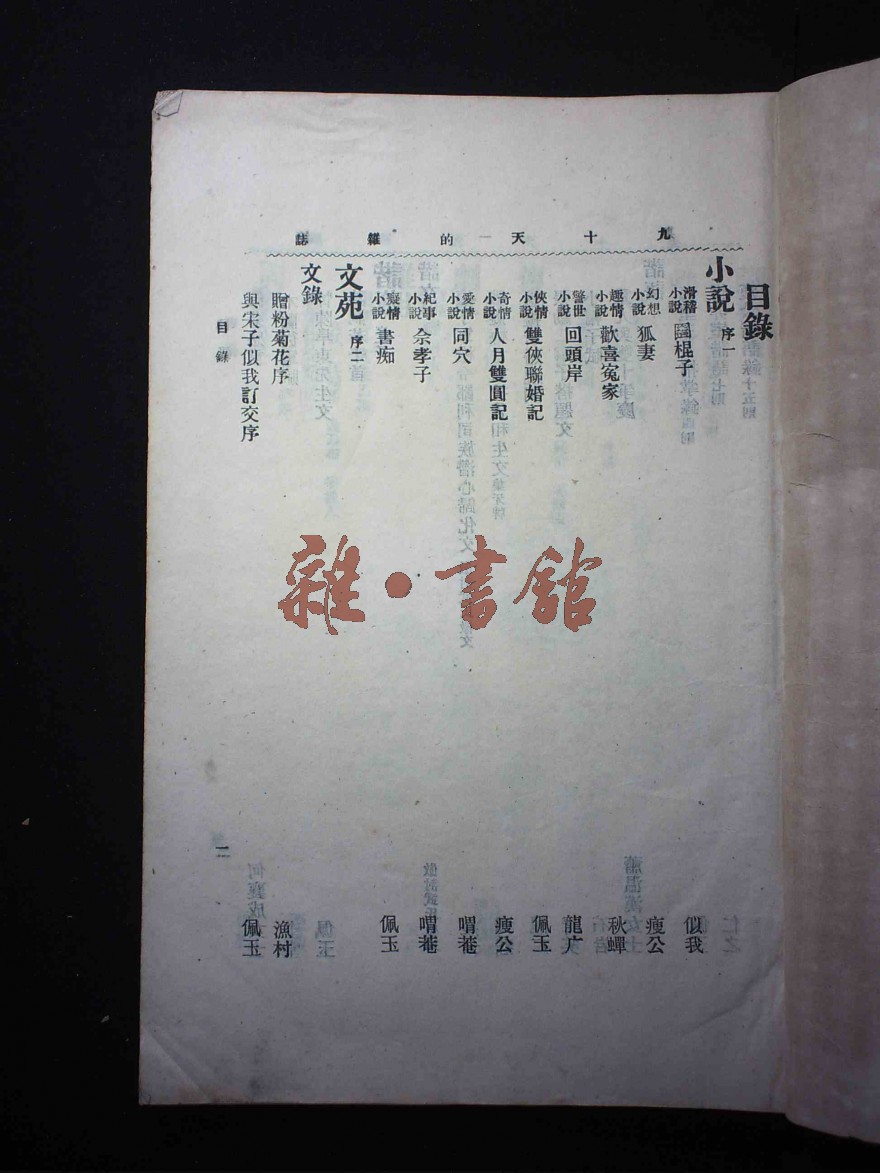 九十天的雜誌
目錄
小說 序一
滑稽小說 國棍子 似我
幻想小說 狐妻 瘦公
趣情小說 歡喜冤家 秋蟬
警世小說 回頭岸 龍广
俠情小說 雙俠聯婚記 佩玉
奇情小說 人月雙圓記 瘦公
愛情小說 同穴 喟菴
紀事小說 佘孝子 喟菴
癡情小說 書痴 佩玉
文苑 序二
文錄
贈粉菊花序 漁村
與宋子似我訂交序 佩玉
目錄 二
雜·書館